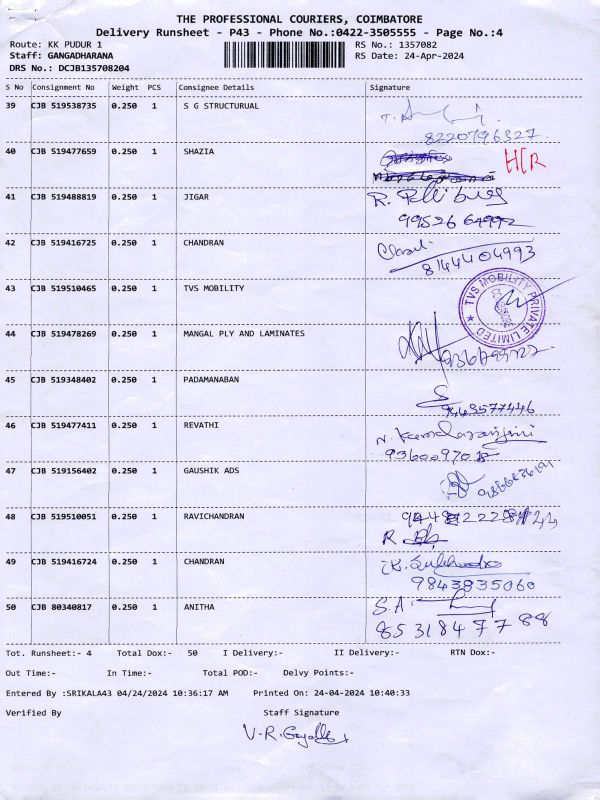 THE PROFESSIONAL COURIERS, COIMBATORE
Delivery Runsheet - P43 - Phone No.:0422-3505555 - Page No.:4
Route: KK PUDUR 1
RS No.: 1357082
Staff: GANGADHARANA
RS Date: 24-Apr-2024
DRS No.: DCJB135708204
S No Consignment No Weight PCS Consignee Details Signature
39 CJB 519538735 0.250 1 S G STRUCTURUAL
8220796327
40 CJB 519477659 0.250 1 SHAZIA
41 CJB 519488819 0.250 1 JIGAR
42 CJB 519416725 0.250 1 CHANDRAN
8144404993
43 CJB 519510465 0.250 1 TVS MOBILITY
TVS MOBILITY PRIVATE LIMITED
44 CJB 519478269 0.250 1 MANGAL PLY AND LAMINATES
45 CJB 519348402 0.250 1 PADAMANABAN
9443577446
46 CJB 519477411 0.250 1 REVATHI
47 CJB 519156402 0.250 1 GAUSHIK ADS
48 CJB 519510051 0.250 1 RAVICHANDRAN
49 CJB 519416724 0.250 1 CHANDRAN
9843835060
50 CJB 80340817 0.250 1 ANITHA
S.A.
8531847788
Tot. Runsheet:- 4 Total Dox:- 50 I Delivery:- II Delivery:- RTN Dox:-
Out Time:- In Time:- Total POD:- Delvy Points:-
Entered By :SRIKALA43 04/24/2024 10:36:17 AM Printed On: 24-04-2024 10:40:33
Verified By Staff Signature